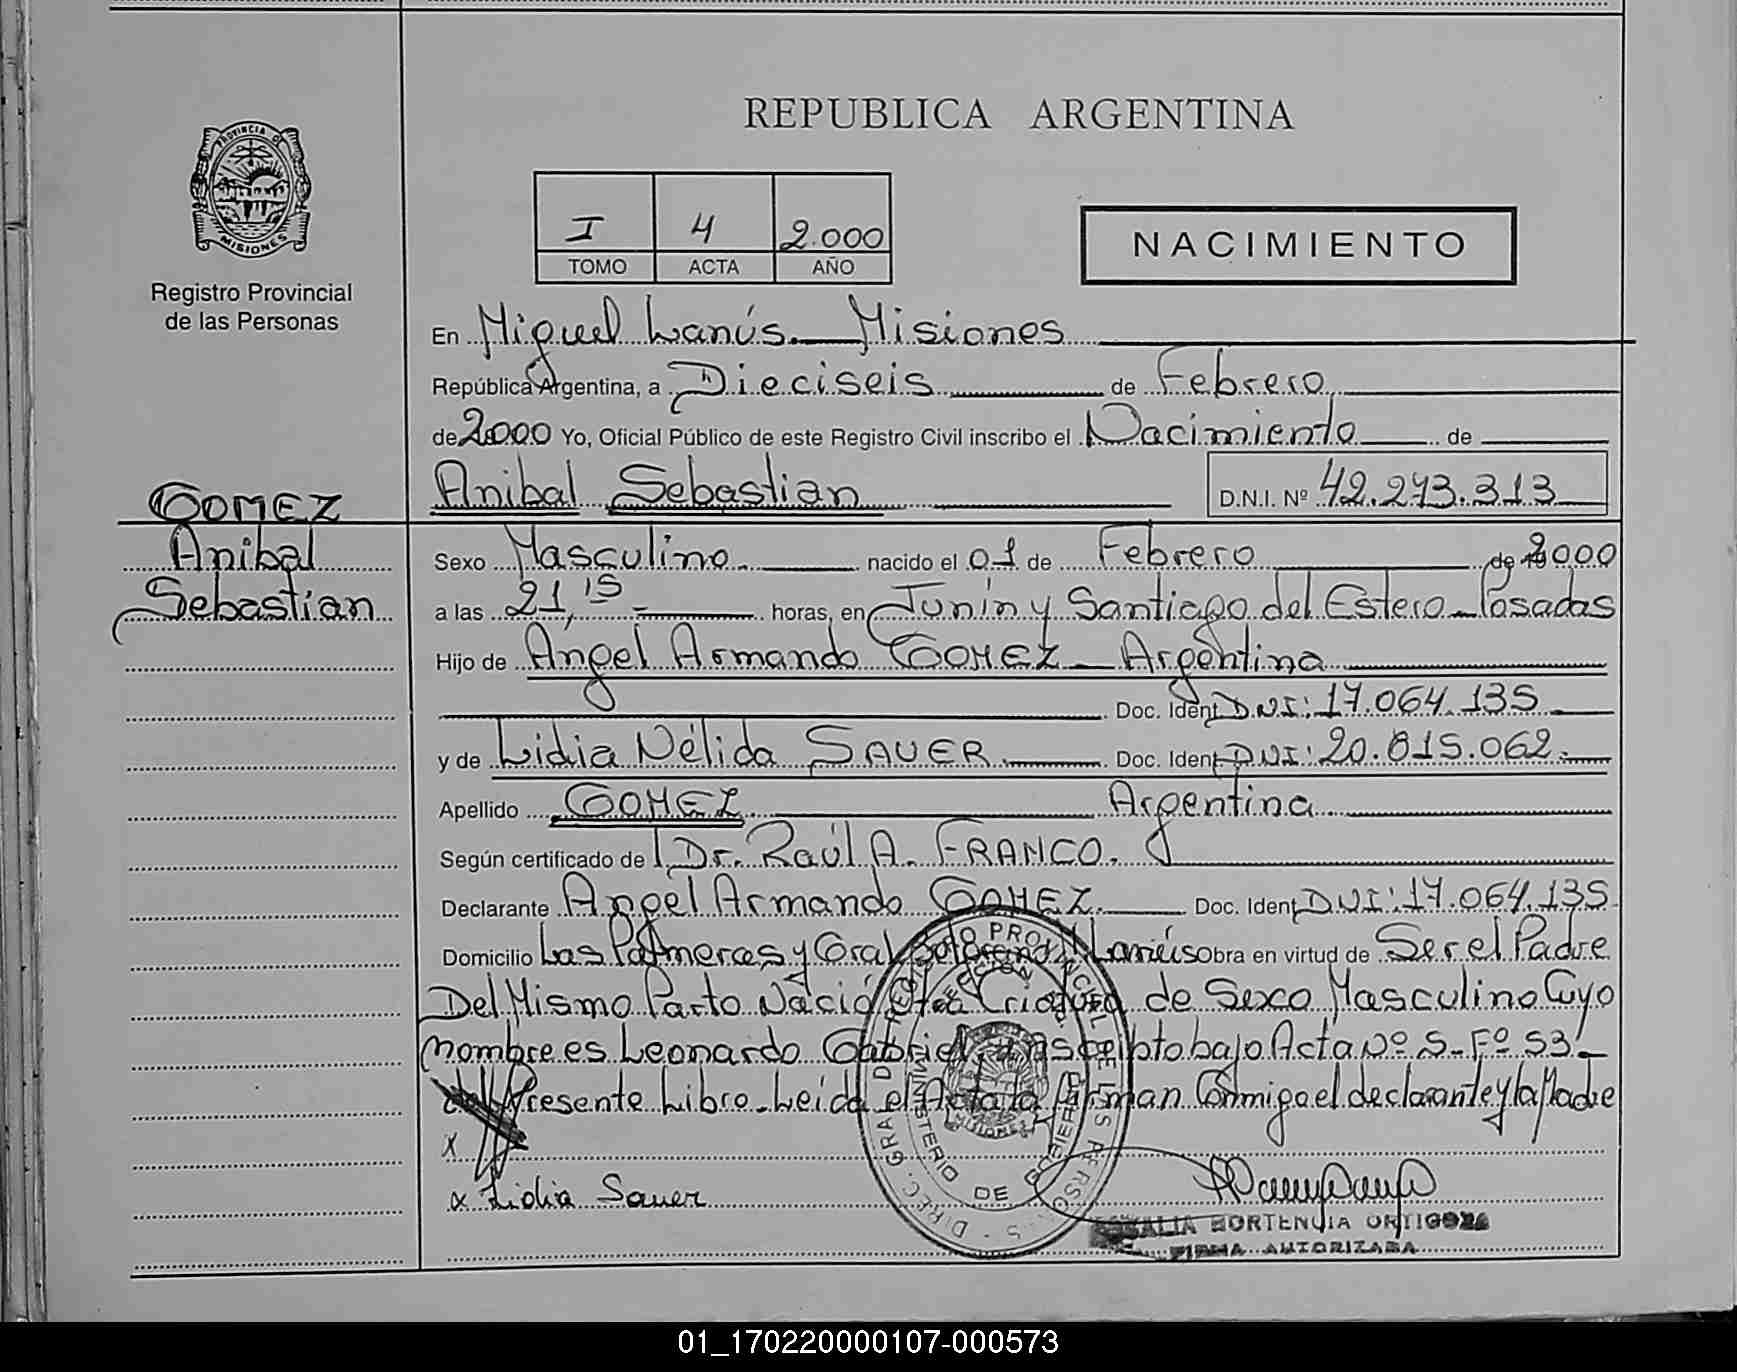 REPUBLICA ARGENTINA
PROVINCIA DE
MISIONES
Registro Provincial
de las Personas
I 4 2.000
TOMO ACTA AÑO
NACIMIENTO
En Miguel Lanús. Misiones
República Argentina, a Dieciseis de Febrero
de 2000 Yo, Oficial Público de este Registro Civil inscribo el Nacimiento de
Anibal Sebastian D.N.I. Nº 42.273.313
GOMEZ
Anibal
Sebastian
Sexo Masculino. nacido el 01 de Febrero de 2000
a las 21,15 horas, en Junín y Santiago del Estero - Posadas
Hijo de Angel Armando GOMEZ - Argentina
Doc. Ident DNI: 17.064.135
y de Lidia Nélida SAUER. Doc. Ident DNI: 20.815.062.
Apellido GOMEZ. Argentina
Según certificado de Dr. Raúl A. FRANCO.
Declarante Angel Armando GOMEZ. Doc. Ident DNI: 17.064.135
Domicilio Las Palmeras y Gral Obra en virtud de Ser el Padre
Del Mismo Parto Nació Otra Criatura de Sexo Masculino Cuyo
nombre es Leonardo Gabriel, inscripto bajo Acta Nº 5 - Fº 53 -
del Presente Libro - Leída el Acta la firman Conmigo el declarante y la Madre
x
x Lidia Sauer
DIREC. GRAL. DEL REGISTRO PROVINCIAL DE LAS PERSONAS
MINISTERIO DE GOBIERNO
MISIONES
HORTENCIA ORTIGOZA
FIRMA AUTORIZADA
01_170220000107-000573